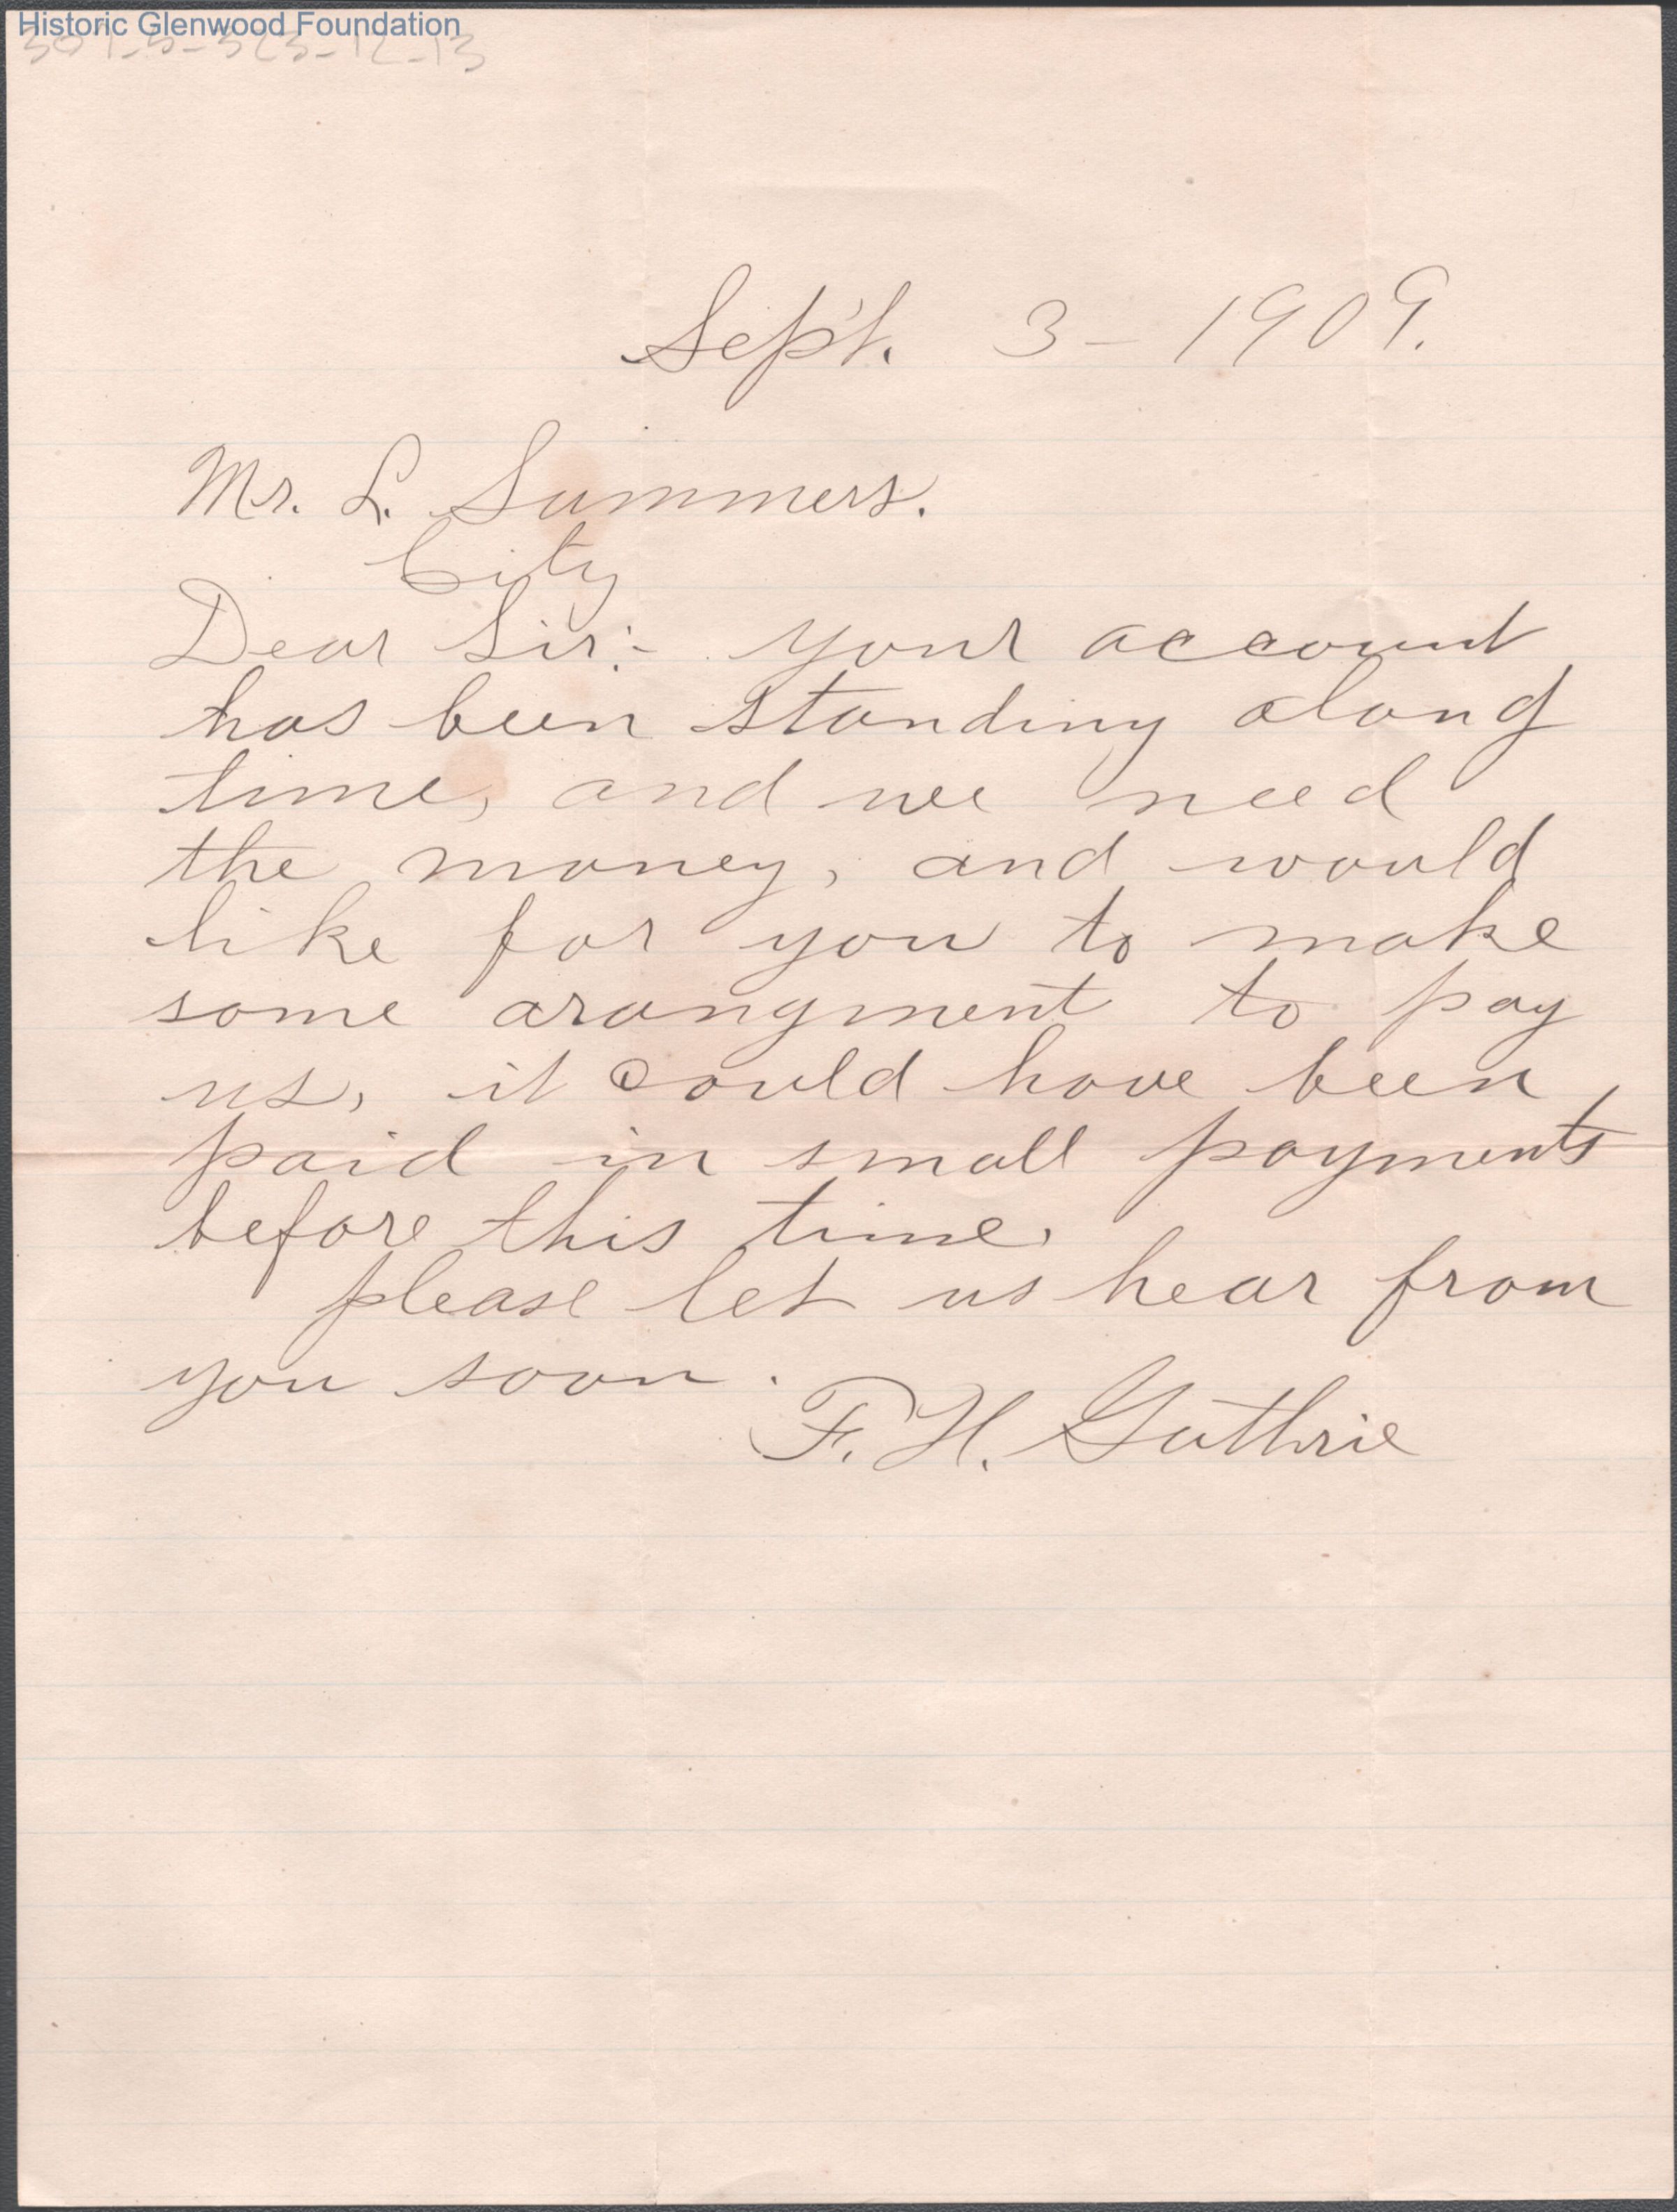 Historic Glenwood Foundation
Sep't. 3 - 1909.
Mr. L. Summers.
City
Dear Sir:- your account
has been standing along
time, and we need
the money, and would
like for you to make
some arangment to pay
us, it could have been
paid in small payments
before this time.
please let us hear from
you soon.
F. H. Guthrie